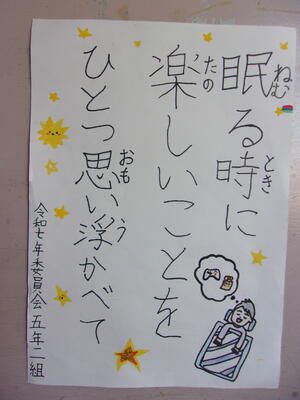 眠る時に
ねむ
とき
楽しいことを
たの
ひとつ思い浮かべて
おも
う
令和七年委員会五年二組